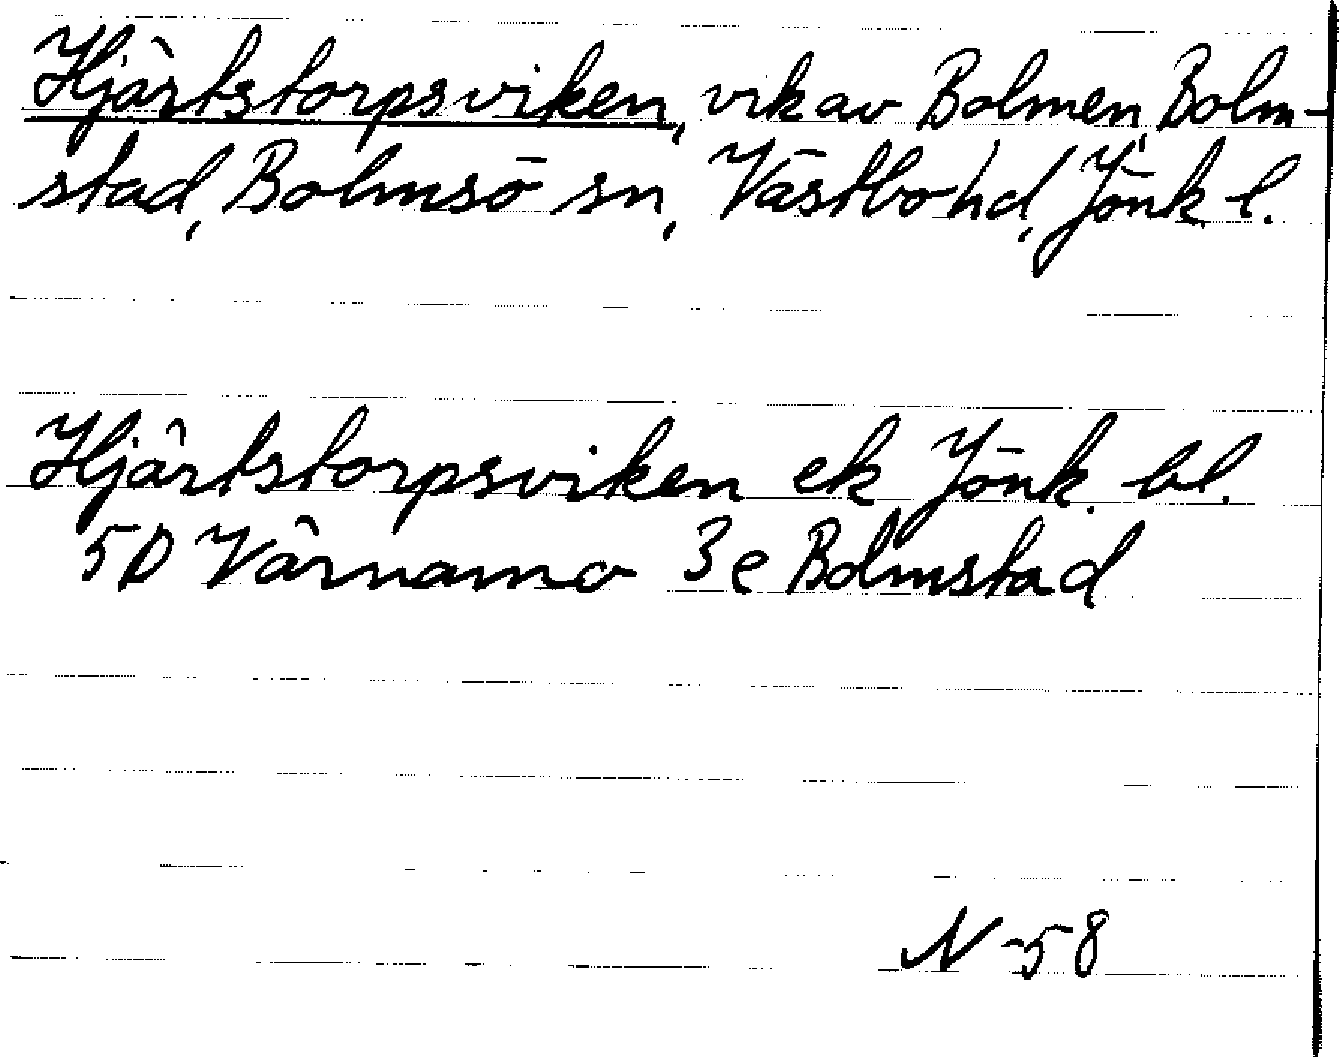 Hjärtstorpsviken, vik av Bolmen, Bolm-
stad, Bolmsö sn, Västbo hd, Jönk. l.
Hjärtstorpsviken ek Jönk. bl.
5D Värnamo 3e Bolmstad
N -58